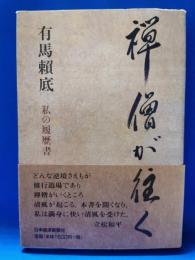 禅僧が往く
有馬頼底
私の履歴書
どんな逆境さえもが
修行道場であり
禅僧がいくところ
清風が起こる。本書を聞くなり、
私は満身に快い清風を受けた。
立松和平
日本経済新聞社